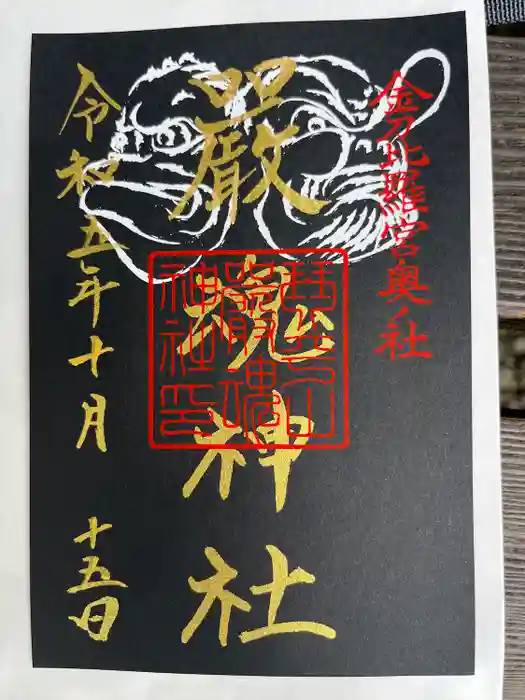 金刀比羅宮奥ノ社
嚴魂神社
琴平山
嚴魂
神社印
令和五年十月
十五日